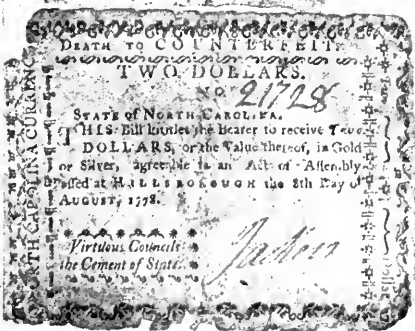 DEATH TO COUNTERFEIT.
TWO DOLLARS.
NO 21728
STATE OF NORTH-CAROLINA.
THIS Bill Intitles the Bearer to receive Two
DOLLARS, or the Value thereof, in Gold
or Silver, agreeable to an Act of Assembly
passed at HILLSBOROUGH the 8th Day of
AUGUST, 1778.
Virtuous Councils
the Cement of State.
NORTH CAROLINA CURRENCY